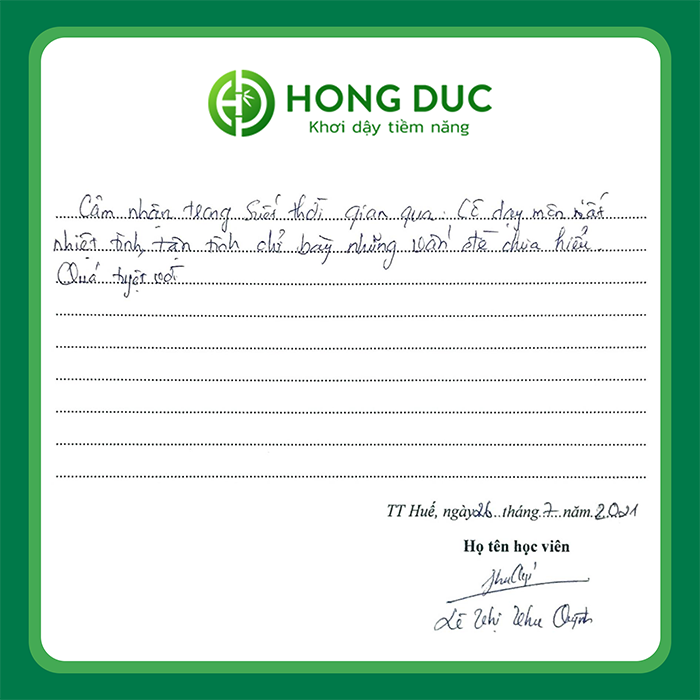 HONG DUC
Khơi dậy tiềm năng
Cảm nhận trong suốt thời gian qua: Cô dạy môn rất
nhiệt tình, tận tình chỉ bày những vấn đề chưa hiểu.
Quá tuyệt vời
TT Huế, ngày 26 tháng 7 năm 2021
Họ tên học viên
Lê Thị Như Quỳnh